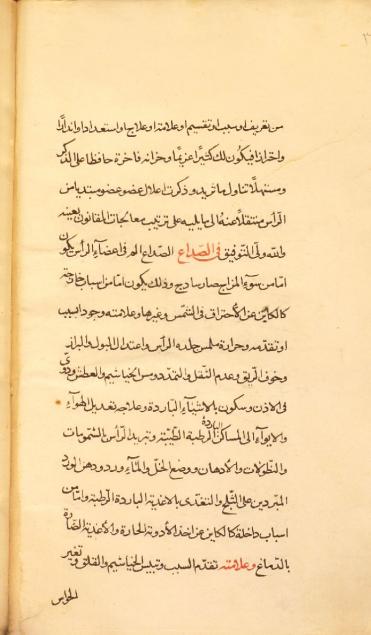 من تعريف او سبب او تقسيم او علامة او علاج او استعداد او انذار
واحتراز فيكون لك كثيرا عزيزا وخزانة فاخرة حافظا على الذكر
ومستهلا تناول ما تريد وذكرت اعلال عضو عضو مبتديا من
الرأس منتقلا عنه الى ما يليه على ترتيب معالجات القانون بعينه
والله ولى التوفيق فى الصداع الصداع الم فى اعضاء الرأس يكون
اما من سوء المزاج حار ساذج وذلك يكون اما من اسباب خارجة
كالكاين عن الاحتراق فى الشمس وغيرها وعلامته وجود السبب
او تقدمه وحرارة ملمس جلدة الرأس واعتدال البول والبراز
وجفوف الريق وعدم الثقل والتمدد ويبس الخياشيم والعطش ودوى
فى الاذن وسكون بالاشياء الباردة وعلاجه تعديل الهواء
والايواء الى المساكن الباردة الرطبة الطيبة وتبريد الرأس بالشمومات
والنطولات والادهان ووضع الخل والماء ورد ودهن الورد
المبردين على الثلج والتغذى بالاغذية الباردة الرطبة واما من
اسباب داخلة كالكاين عن اخذ الادوية الحارة والاغذية الضارة
بالدماغ وعلامته تقدم السبب ويبس الخياشيم والقلق وتغير
الحواس